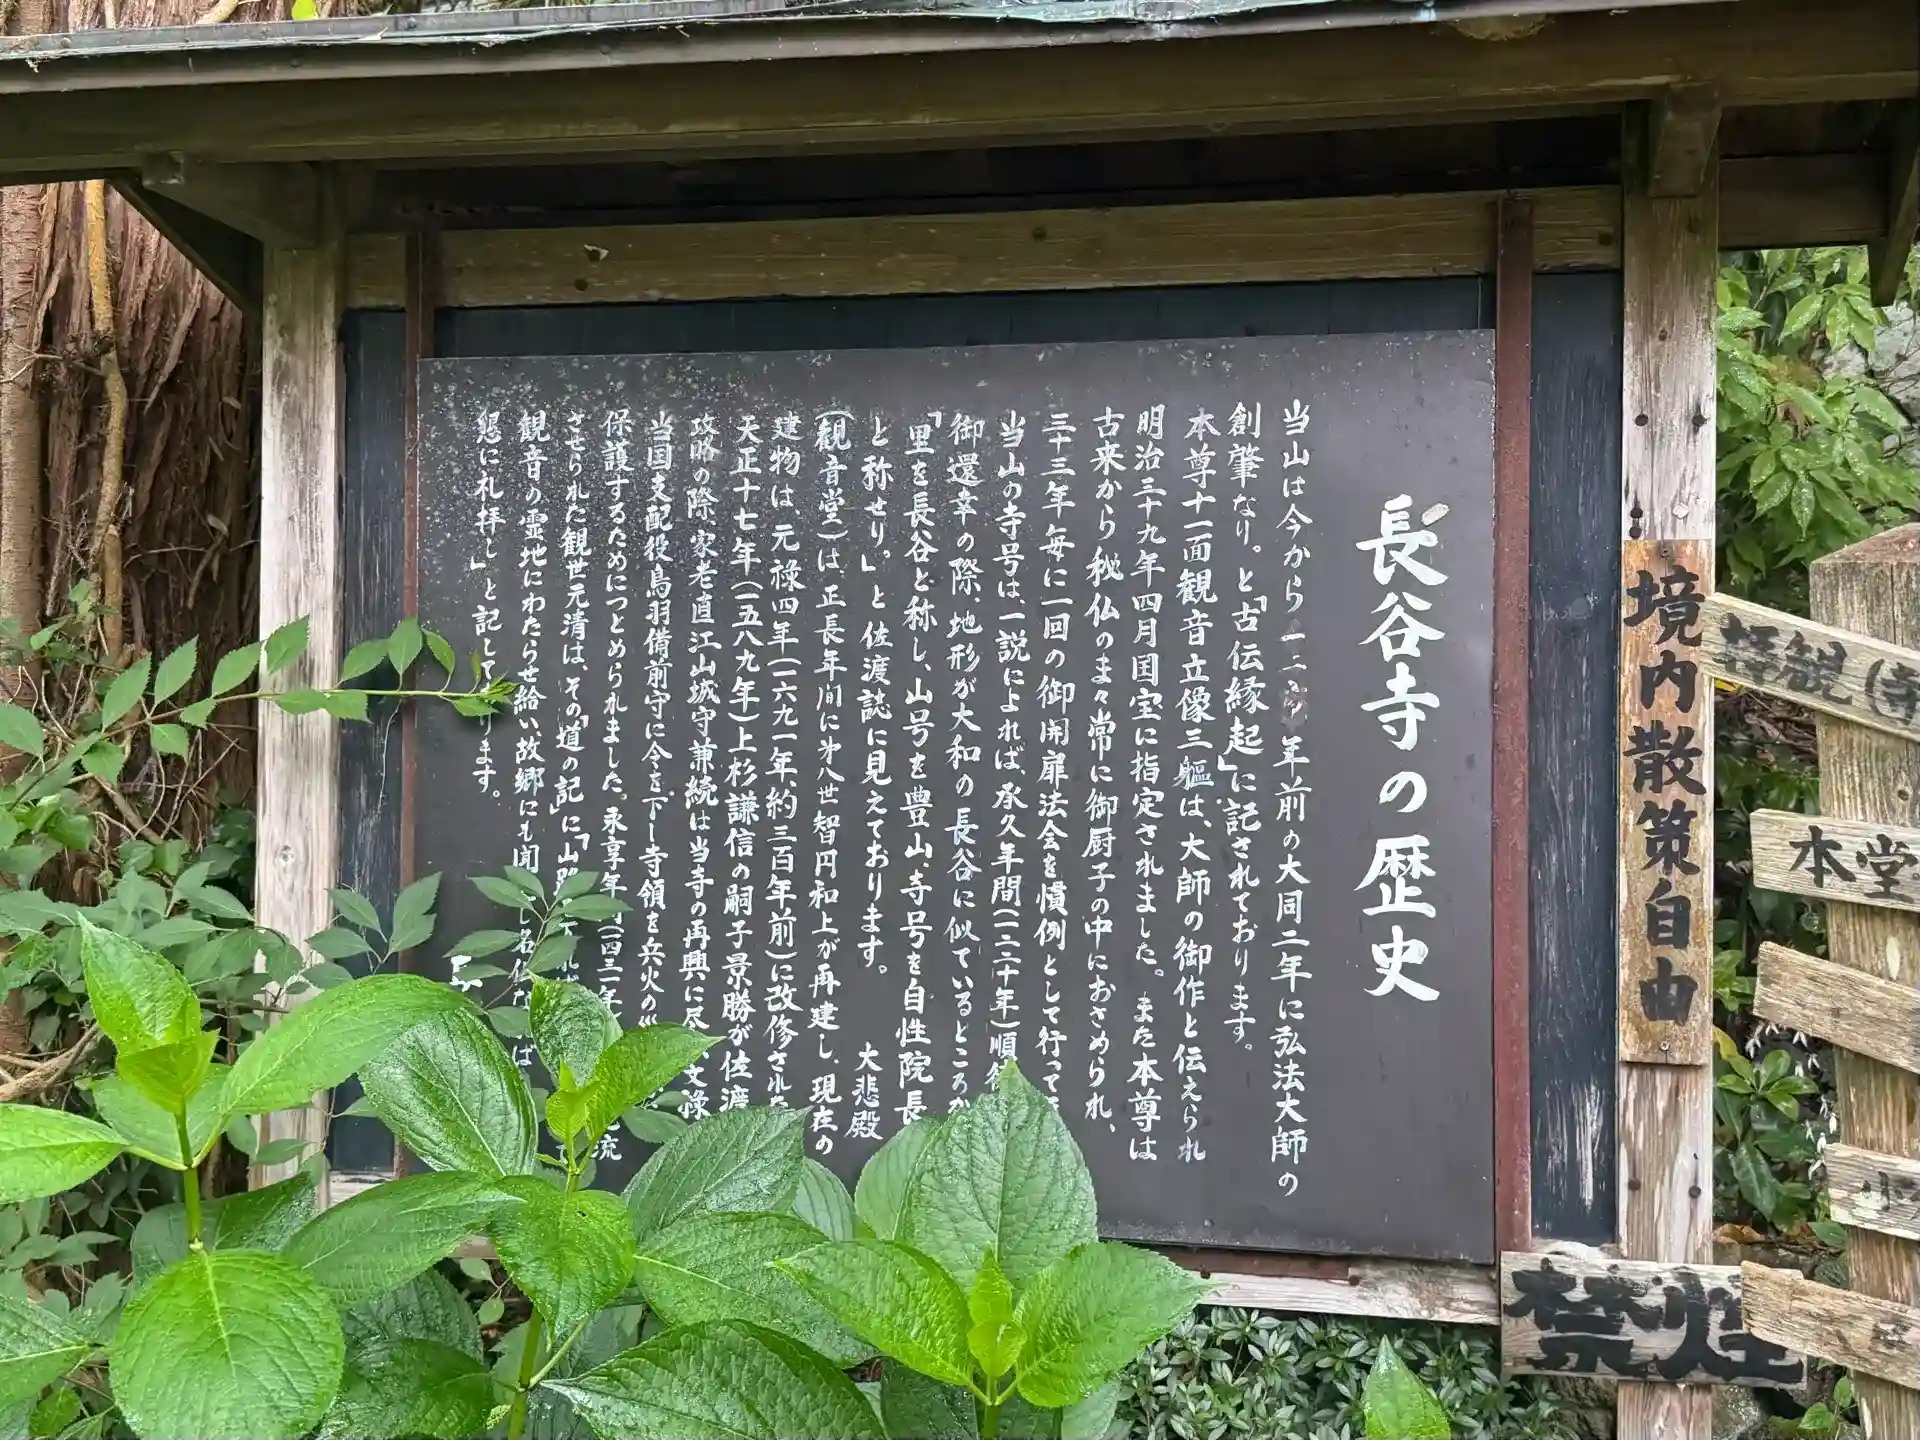 長谷寺の歴史
当山は今から一二 年前の大同二年に弘法大師の
創肇なり。と「古伝縁起」に記されております。
本尊十一面観音立像三軀は、大師の御作と伝えられ
明治三十九年四月国宝に指定されました。また本尊は
古来から秘仏のまゝ常に御厨子の中におさめられ、
三十三年毎に一回の御開扉法会を慣例として行って
当山の寺号は、一説によれば、承久年間(一二二十年)順
御還幸の際、地形が大和の長谷に似ているところか
「里を長谷と称し、山号を豊山、寺号を自性院長
と称せり。」と佐渡誌に見えております。 大悲殿
(観音堂)は、正長年間に第八世智円和上が再建し、現在の
建物は、元禄四年(一六九一年、約三百年前)に改修された
天正十七年(一五八九年)上杉謙信の嗣子景勝が佐渡
攻略の際、家老直江山城守兼続は当寺の再興に尽 文禄
当国支配役鳥羽備前守に令を下し寺領を兵火の
保護するためにつとめられました。永享年 (四三 年 流
させられた観世元清は、その「道の記」に「山路 れば
観音の霊地にわたらせ給い、故郷にも聞 し名仏な ば
懇に礼拝し」と記して ります。
境内散策自由
拝観(寺
本堂
小
禁煙